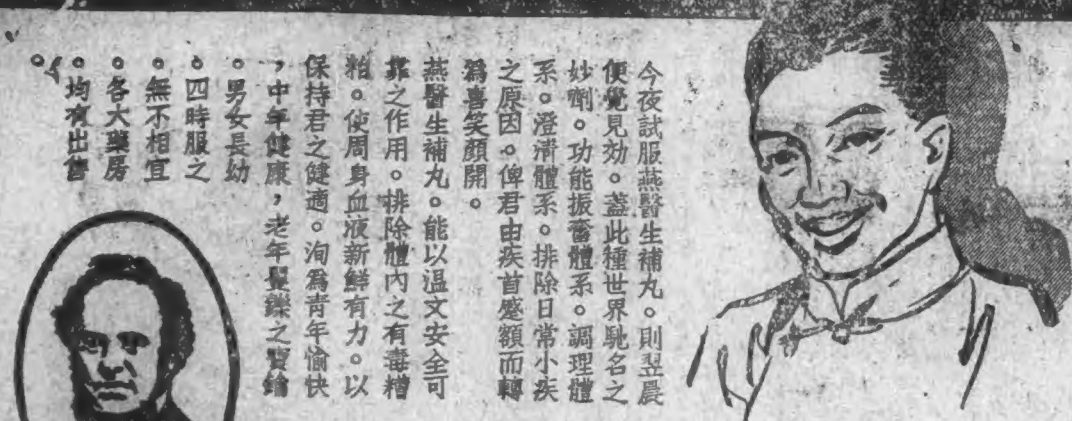 今夜試服燕醫生補丸。則翌晨
便覺見効。蓋此種世界馳名之
妙劑。功能振奮體系。調理體
系。澄清體系。排除日常小疾
之原因。俾君由疾首蹙額而轉
爲喜笑顏開。
燕醫生補丸。能以温文安全可
靠之作用。排除體內之有毒糟
粕。使周身血液新鮮有力。以
保持君之健適。洵爲青年愉快
，中年健康，老年矍鑠之寳鑰
。男女長幼
。四時服之
。無不相宜
。各大藥房
。均有出售
。